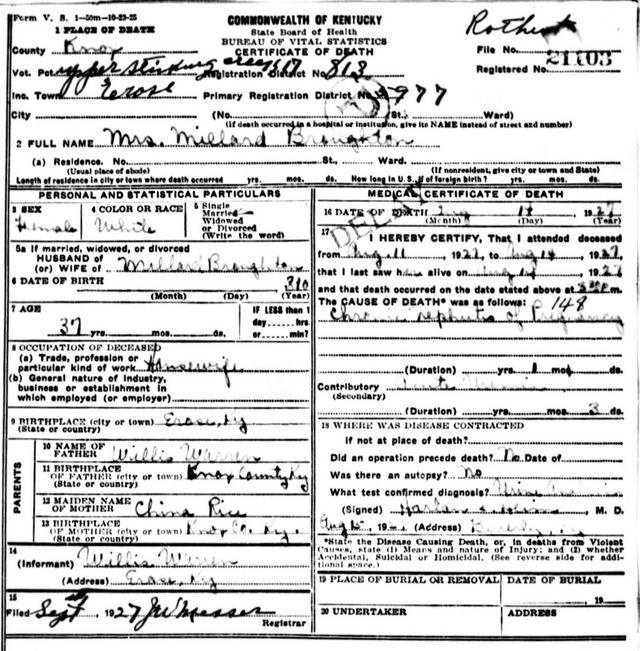 Form V. S. 1-50m-10-23-25
1 PLACE OF DEATH
COMMONWEALTH OF KENTUCKY
State Board of Health
BUREAU OF VITAL STATISTICS
CERTIFICATE OF DEATH
File No. 21103
Registered No.
County Knox
Vot. Pct. Registration District No. 813
Inc. Town Erose Primary Registration District No. 977
City (No. St., Ward)
(If death occurred in a hospital or institution, give its NAME instead of street and number)
2 FULL NAME Mrs. Millard Broughton
(a) Residence. No. St., Ward.
(Usual place of abode) (If nonresident, give city or town and State)
Length of residence in city or town where death occurred yrs. mos. ds. How long in U. S., if of foreign birth? yrs. mos. ds.
PERSONAL AND STATISTICAL PARTICULARS
3 SEX Female
4 COLOR OR RACE White
5 Single Married Widowed or Divorced (Write the word)
5a If married, widowed, or divorced
HUSBAND OF
(or) WIFE OF Millard Broughton
6 DATE OF BIRTH
(Month) (Day) (Year)
7 AGE 37 yrs. mos. ds.
IF LESS than 1 day hrs. or min?
8 OCCUPATION OF DECEASED
(a) Trade, profession or particular kind of work Housewife
(b) General nature of industry, business or establishment in which employed (or employer)
9 BIRTHPLACE (city or town) Erose, Ky
(State or country)
PARENTS
10 NAME OF FATHER Willis Warren
11 BIRTHPLACE OF FATHER (city or town) Knox County Ky
(State or country)
12 MAIDEN NAME OF MOTHER China Rice
13 BIRTHPLACE OF MOTHER (city or town) Knox Co. Ky.
(State or country)
14
(Informant) Willis Warren
(Address) Erose, Ky
15
Filed Sept 1927 JW Messer
Registrar
MEDICAL CERTIFICATE OF DEATH
DELAY
16 DATE OF DEATH Aug 14 1927
(Month) (Day) (Year)
17
I HEREBY CERTIFY, That I attended deceased
from Aug 11 1927, to Aug 14 1927
that I last saw alive on 192
and that death occurred on the date stated above at m.
The CAUSE OF DEATH* was as follows: 148
Chronic nephritis of Pregnancy
(Duration) yrs. 1 mos. ds.
Contributory Acute Uremia
(Secondary)
(Duration) yrs. mos. 3 ds.
18 WHERE WAS DISEASE CONTRACTED
if not at place of death?
Did an operation precede death? No Date of
Was there an autopsy? No
What test confirmed diagnosis? Urine
(Signed) Harlan M. D.
Aug 15, 19 (Address)
*State the Disease Causing Death, or, in deaths from Violent
Causes, state (1) Means and nature of Injury; and (2) whether
Accidental, Suicidal or Homicidal. (See reverse side for addi-
tional space.)
19 PLACE OF BURIAL OR REMOVAL DATE OF BURIAL
19
20 UNDERTAKER ADDRESS